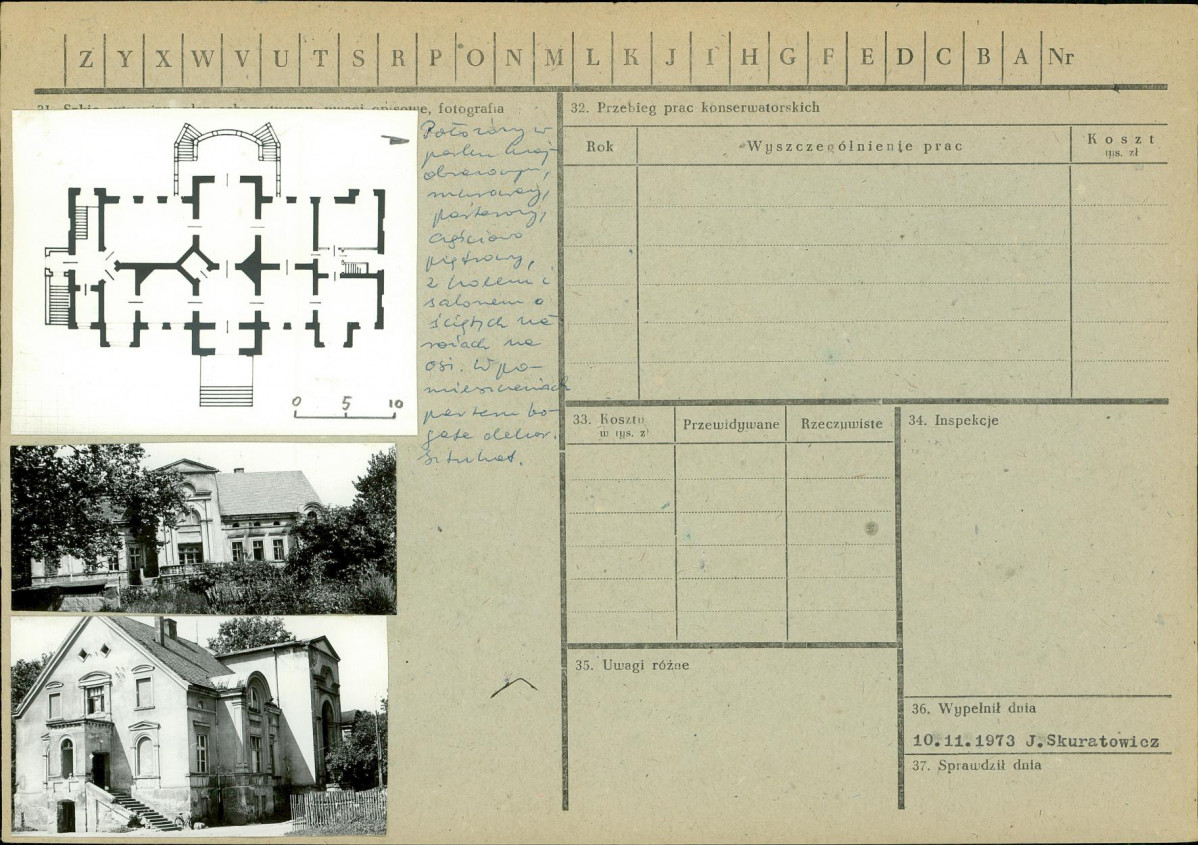 Z Y X W V U T S R P O N M L K J I H G F E D C B A Nr
fotografia
Położony w
parku kraj-
obrazowym,
murowany,
parterowy,
częściowo
piętrowy,
z holem i
salonem o
ściętych na-
rożach na
osi. W po-
mieszczeniach
parteru bo-
gata dekor.
sztukat.
0 5 10
32. Przebieg prac konserwatorskich
Rok Wyszczególnienie prac Koszt
tys. zł
33. Koszty Przewidywane Rzeczywiste
w tys. zł
34. Inspekcje
35. Uwagi różne
36. Wypełnił dnia
10.11.1973 J.Skuratowicz
37. Sprawdził dnia